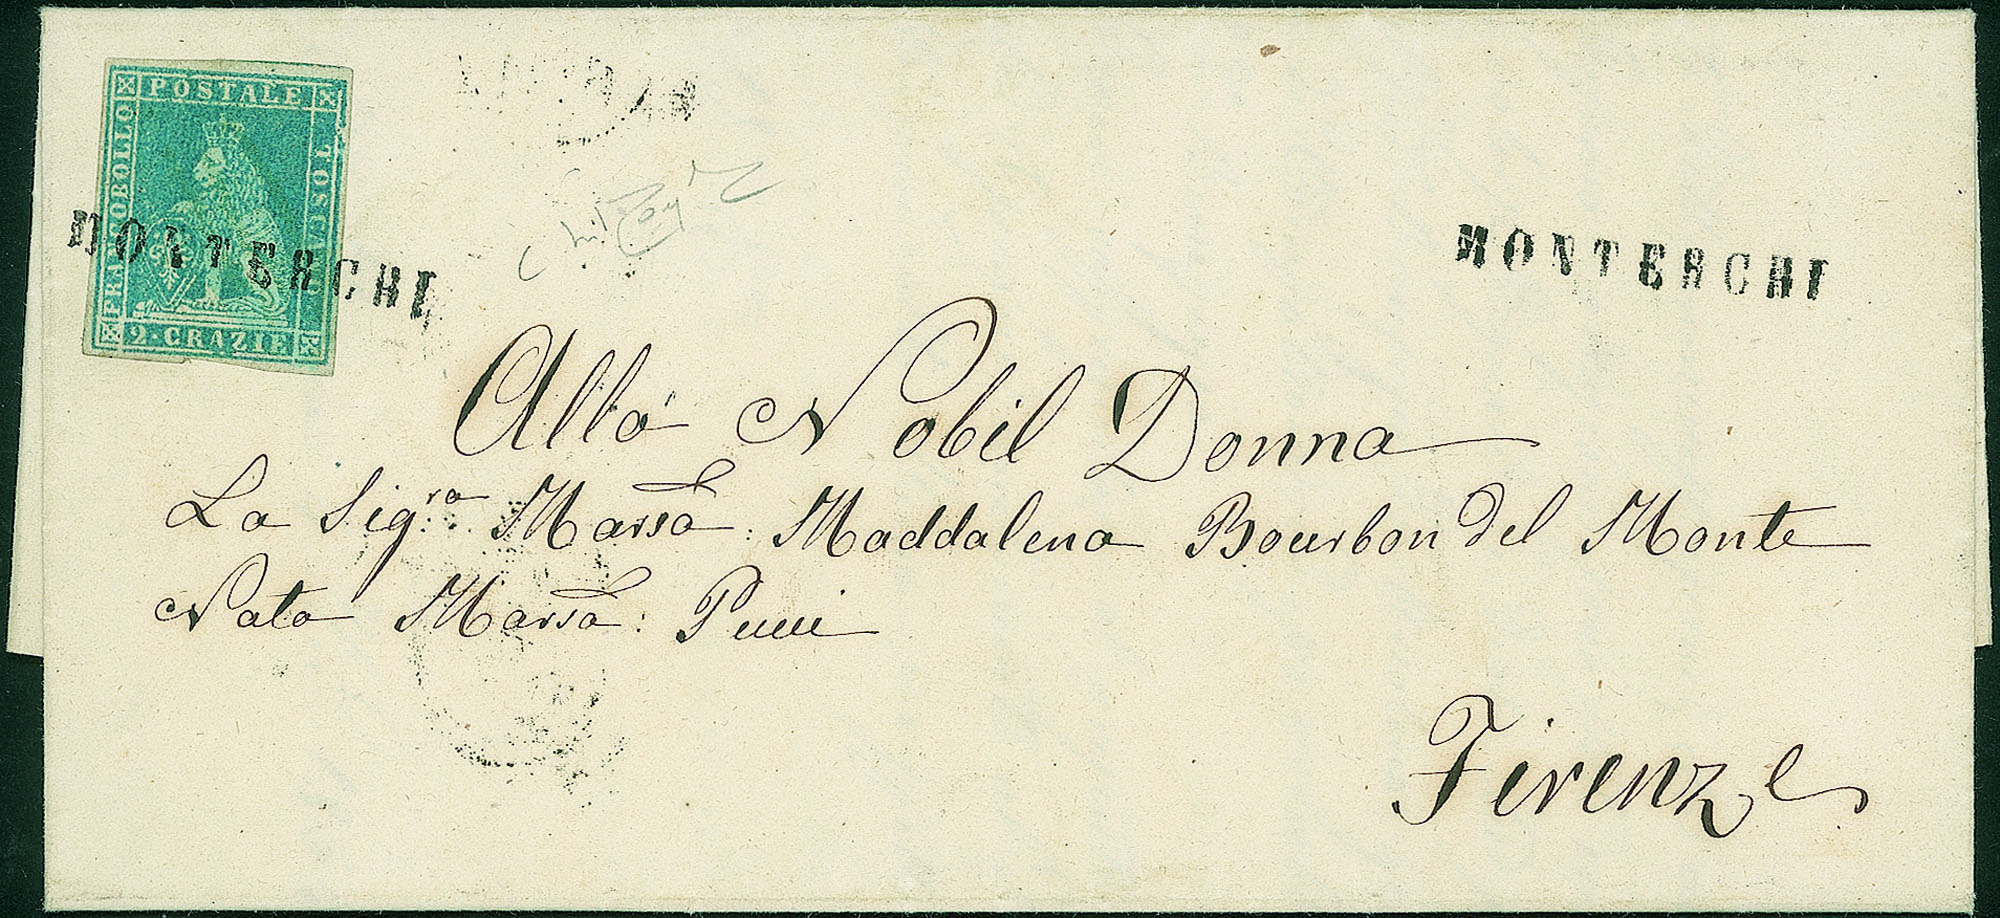 POSTALE
FRANCOBOLLO
TOSCANO
2·CRAZIE
MONTERCHI
MONTERCHI
Alla Nobil Donna
La Sig:ra Marsa: Maddalena Bourbon del Monte
Nata Marsa: Pucci
Firenze